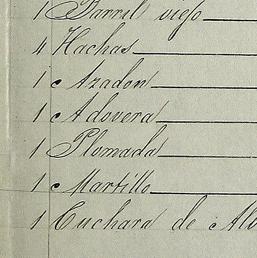 1 Barril viejo
4 Hachas
1 Azadon
1 Adovera
1 Plomada
1 Martillo
1 Cuchara de